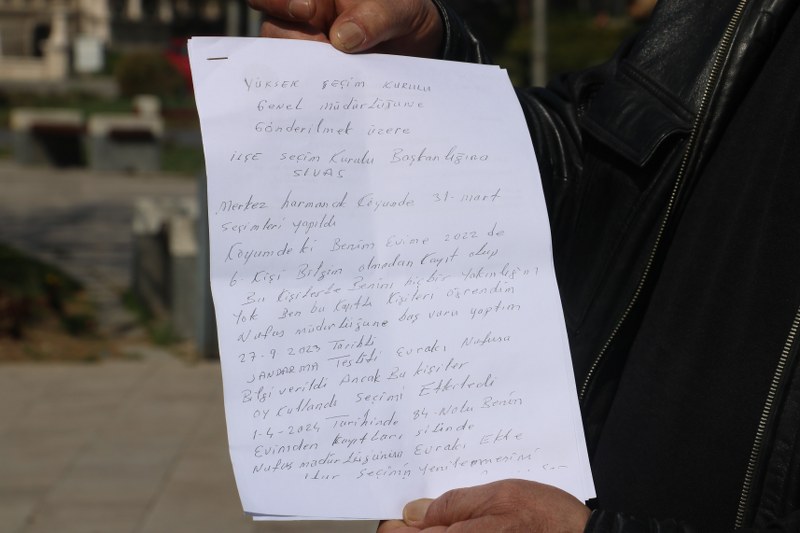 YÜKSEK SEÇİM KURULU
Genel müdürlüğüne
Gönderilmek üzere
ilçe seçim Kurulu Başkanlığına
SİVAS
Merkez harmancık Köyünde 31-mart
seçimleri yapıldı
Köyümdeki Benim Evime 2022 de
6. Kişi Bilgim olmadan Kayıt olup
Bu Kişilerle Benim hiç bir Yakınlığım
Yok Ben bu Kayıtlı Kişileri öğrendim
Nufus müdürlüğüne baş vuru yaptım
27-9 2023 Tarihli
JANDARMA Tespiti Evrakı Nufusa
Bilgi verildi Ancak Bu Kişiler
oy Kullandı Seçimi Etkiledi
1-4-2024 Tarihinde 84-Nolu Benim
Evimden Kayıtları silindi
Nufus müdürlüğünün Evrakı Ekte
seçimin Yenilenmesini